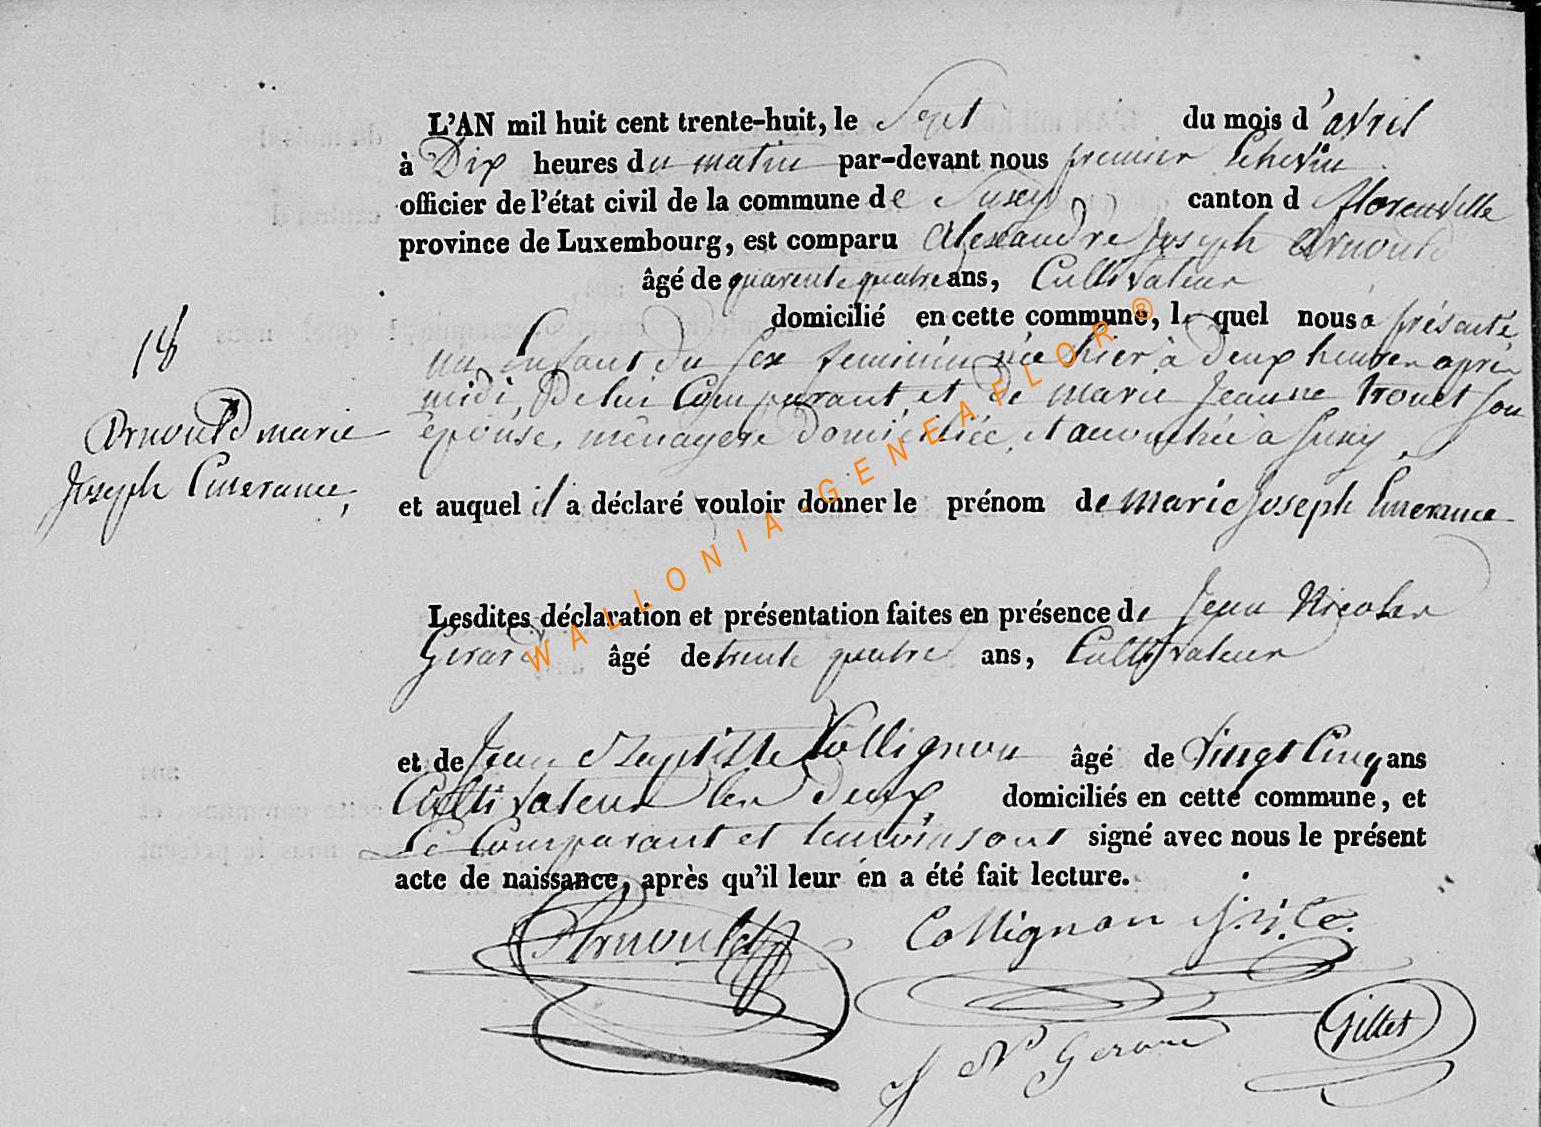 L'AN mil huit cent trente-huit, le Sept du mois d'avril
à Dix heures du matin par-devant nous premier Echevin
officier de l'état civil de la commune de Suxy canton d florenville
province de Luxembourg, est comparu Alexandre Joseph Arnould
âgé de quarente quatre ans, Cultivateur
domicilié en cette commune, le quel nous a présenté
un Enfant du Sex feminin née hier à deux heures aprés
midi, De lui Comparant et de marie Jeanne trouet Son
épouse, ménagere domiciliée et accouchée à Suxy,
et auquel il a déclaré vouloir donner le prénom de marie Joseph Emerance
18
Arnould marie
Joseph Emerance,
Lesdites déclaration et présentation faites en présence de Jean Nicolas
Gerard âgé de trente quatre ans, Cultivateur
et de Jean Baptiste Collignon âgé de Vingt Cinq ans
Cultivateur les deux domiciliés en cette commune, et
Le Comparant et temoins ont signé avec nous le présent
acte de naissance, après qu'il leur en a été fait lecture.
Arnould Collignon
J N Gerard Gillet
WALLONIA-GENEAFLOR®